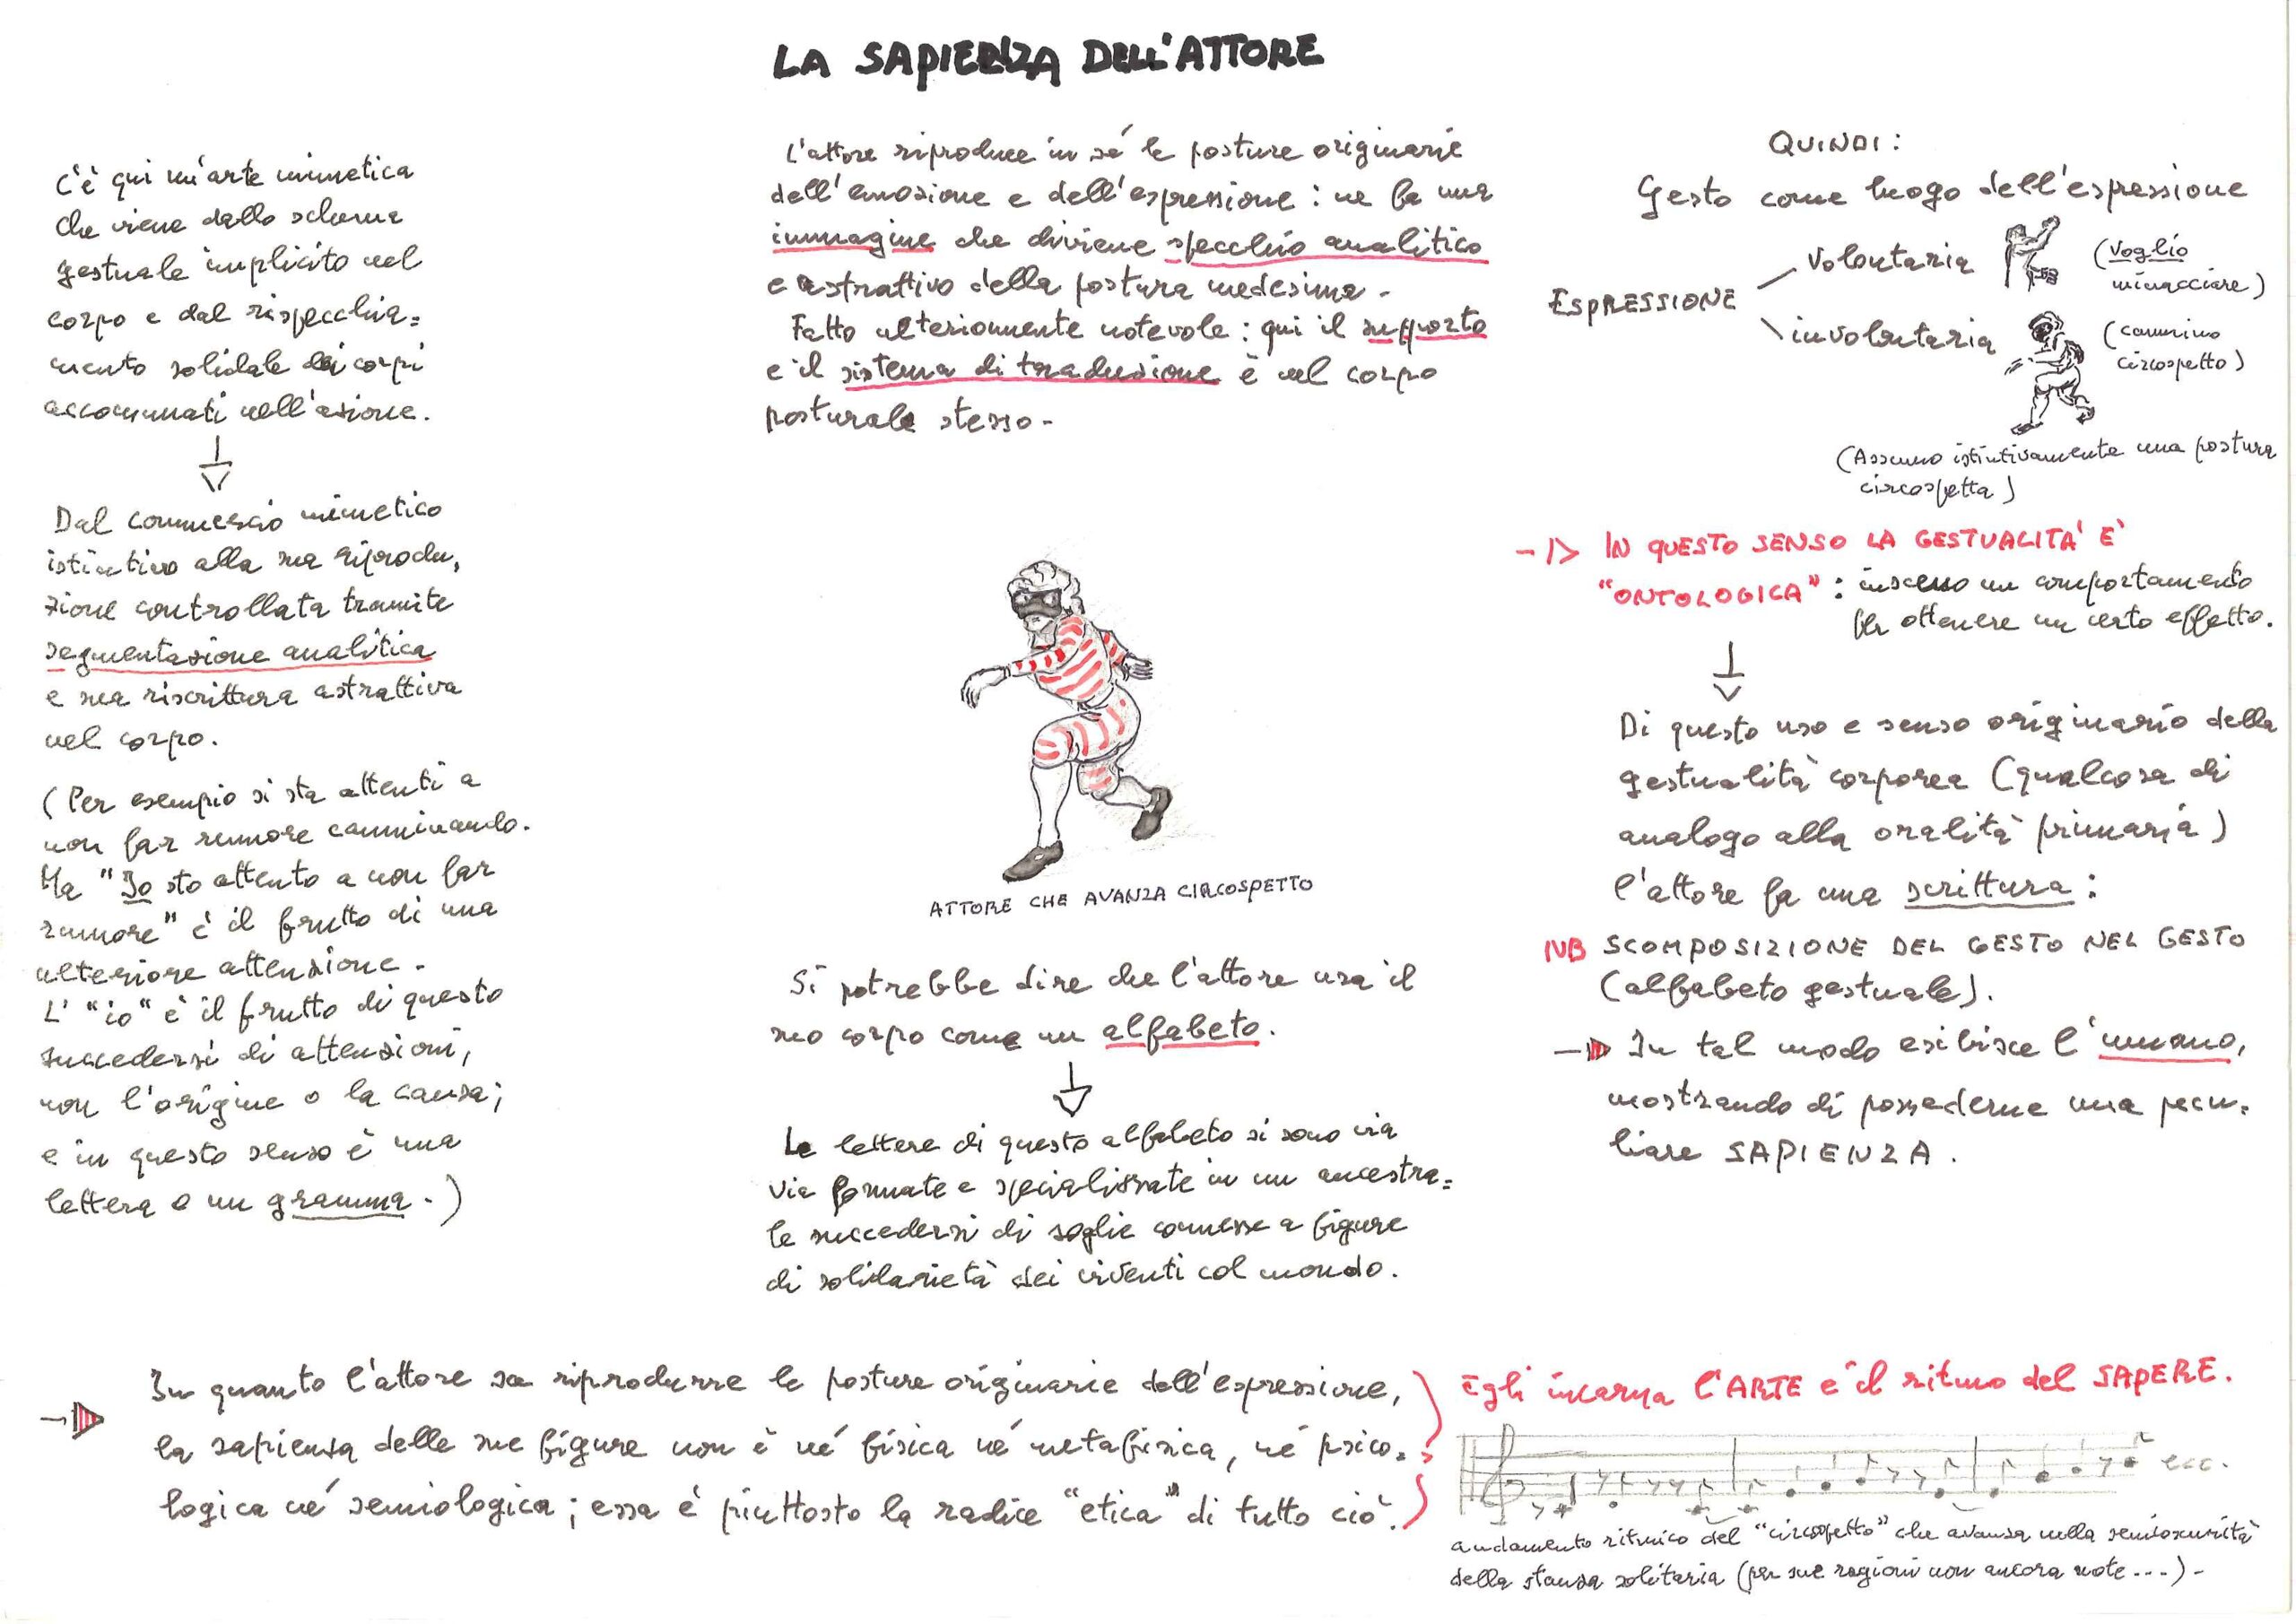 LA SAPIENZA DELL'ATTORE
C'è qui un'arte mimetica
che viene dallo schema
gestuale implicito nel
corpo e dal rispecchia=
mento solidale dei corpi
accomunati nell'azione.
Dal commercio mimetico
istintivo alla sua riprodu,
zione controllata tramite
segmentazione analitica
e sua riscrittura astrattiva
nel corpo.
(Per esempio si sta attenti a
non far rumore camminando.
Ma "Io sto attento a non far
rumore" è il frutto di una
ulteriore attenzione.
L' "io" è il frutto di questo
succedersi di attenzioni,
non l'origine o la causa;
e in questo senso è una
lettera o un gramma.)
L'attore riproduce in sé le posture originarie
dell'emozione e dell'espressione: ne fa una
immagine che diviene specchio analitico
e astrattivo della postura medesima.
Fatto ulteriormente notevole: qui il supporto
e il sistema di traduzione è nel corpo
posturale stesso.
ATTORE CHE AVANZA CIRCOSPETTO
Si potrebbe dire che l'attore usa il
suo corpo come un alfabeto.
Le lettere di questo alfabeto si sono via
via formate e specializzate in un ancestra=
le succedersi di soglie connesse a figure
di solidarietà dei viventi col mondo.
QUINDI:
Gesto come luogo dell'espressione
ESPRESSIONE
volontaria
(Voglio
minacciare)
involontaria
(cammino
circospetto)
(Assumo istintivamente una postura
circospetta)
IN QUESTO SENSO LA GESTUALITA' E'
"ONTOLOGICA": insceno un comportamento
per ottenere un certo effetto.
Di questo uso e senso originario della
gestualità corporea (qualcosa di
analogo alla oralità primaria)
l'attore fa una scrittura:
NB SCOMPOSIZIONE DEL GESTO NEL GESTO
(alfabeto gestuale).
In tal modo esibisce l'umano,
mostrando di possederne una pecu=
liare SAPIENZA.
In quanto l'attore sa riprodurre le posture originarie dell'espressione,
la sapienza delle sue figure non è né fisica né metafisica, né psico=
logica né semiologica; essa è piuttosto la radice "etica" di tutto ciò.
Egli incarna l'ARTE e il ritmo del SAPERE.
ecc.
andamento ritmico del "circospetto" che avanza nella semioscurità
della stanza solitaria (per sue ragioni non ancora note...)-